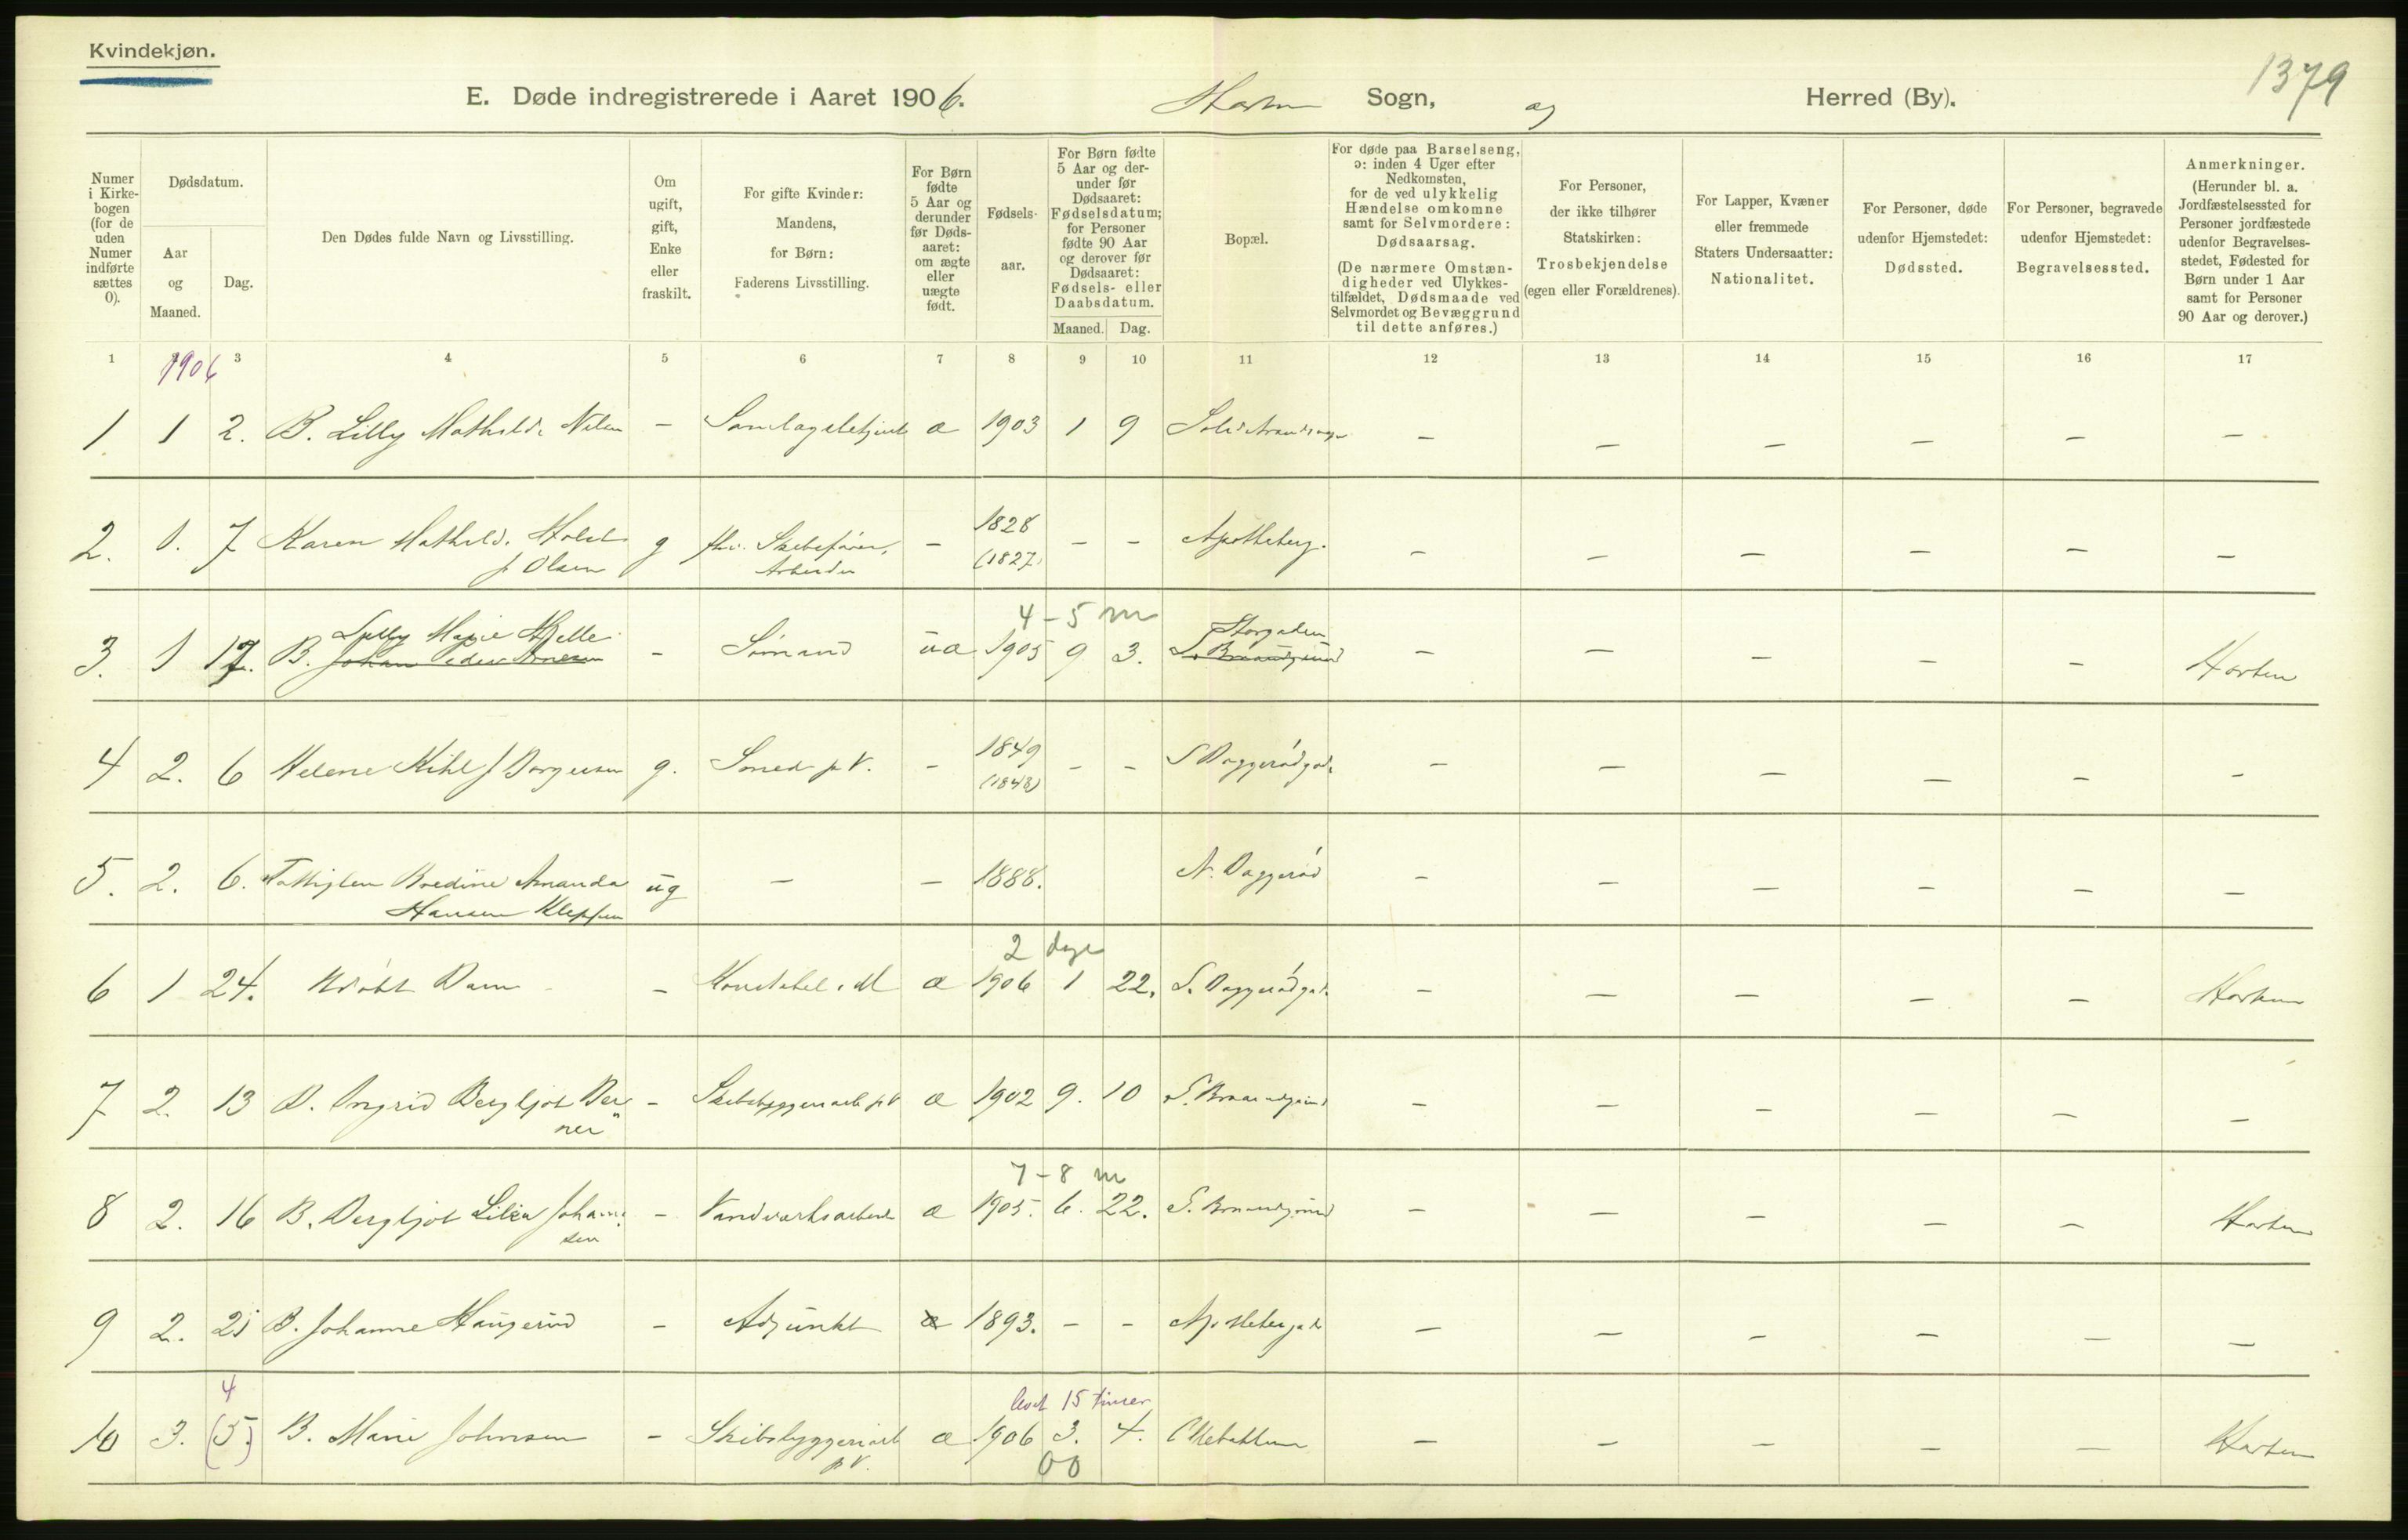 Kvindekjøn.
1379
E. Døde indregistrerede i Aaret 1906. Horten Sogn, og Herred (By).
Numer i Kirke-bogen (for de uden Numer indførte sættes 0).
Dødsdatum.
Aar og Maaned.
Dag.
Den Dødes fulde Navn og Livsstilling.
Om ugift, gift, Enke eller fraskilt.
For gifte Kvinder: Mandens, for Børn: Faderens Livsstilling.
For Børn fødte 5 Aar og derunder før Døds-aaret: om ægte eller uægte født.
Fødsels-aar.
For Børn fødte 5 Aar og der-under før Dødsaaret: Fødselsdatum; for Personer fødte 90 Aar og derover før Dødsaaret: Fødsels- eller Daabsdatum.
Maaned. Dag.
Bopæl.
For døde paa Barselseng, ɔ: inden 4 Uger efter Nedkomsten, for de ved ulykkelig Hændelse omkomne samt for Selvmordere: Dødsaarsag.
(De nærmere Omstæn-digheder ved Ulykkes-tilfældet, Dødsmaade ved Selvmordet og Bevæggrund til dette anføres.)
For Personer, der ikke tilhører Statskirken: Trosbekjendelse (egen eller Forældrenes).
For Lapper, Kvæner eller fremmede Staters Undersaatter: Nationalitet.
For Personer, døde udenfor Hjemstedet: Dødssted.
For Personer, begravede udenfor Hjemstedet: Begravelsessted.
Anmerkninger.
(Herunder bl. a. Jordfæstelsessted for Personer jordfæstede udenfor Begravelses-stedet, Fødested for Børn under 1 Aar samt for Personer 90 Aar og derover.)
1 3 4 5 6 7 8 9 10 11 12 13 14 15 16 17
1906
1 1 2. B. Lilly Mathilde Nilsen – Samlagsbetjent æ 1903 1 9 – – – – – –
2. 1. 7 Karen Mathilde Holst g fhv. Skibsfører, – 1828 – – Apothekerg. – – – – – –
f Olsen Arbeider (1827)
4-5 m
Lilly Marie Storgaden
3. 1 17. B. Johan Peder – Sømand uæ 1905 9 3. S. Braarudgrund – – – – – Horten
4 2. 6 Helene Kihl f Borgersen g. Smed p V. – 1849 – – S Baggerødgade – – – – – –
(1848)
5. 2. 6. Fattiglem Bredine Amanda ug – – 1888. N. Baggerød – – – – – –
Hansen Kleppen
2 dage
6 1 24. Udøbt Dam – Konstabel i M æ 1906 1 22. S. Baggerødgade – – – – – Horten
7 2. 13 B. Ingrid Bergljot Ber – Skibsbyggeriarb p V æ 1902 9. 10 S. Braarudgrund – – – – – –
ner
7-8 m
8 2. 16 B. Bergljot Lilia Johan – Vandværksarbeider æ 1905. 6. 22. S. Braarudgrund – – – – – Horten
sen
9 2. 25 B. Johanne Haugerud – Adjunkt æ 1893. – – Apothekergade – – – – – –
4 levet 15 timer
10 3. (5.) B. Marie Johnsen – Skibsbyggeriarb æ 1906 3. 4. – – – – – Horten
p V. 00